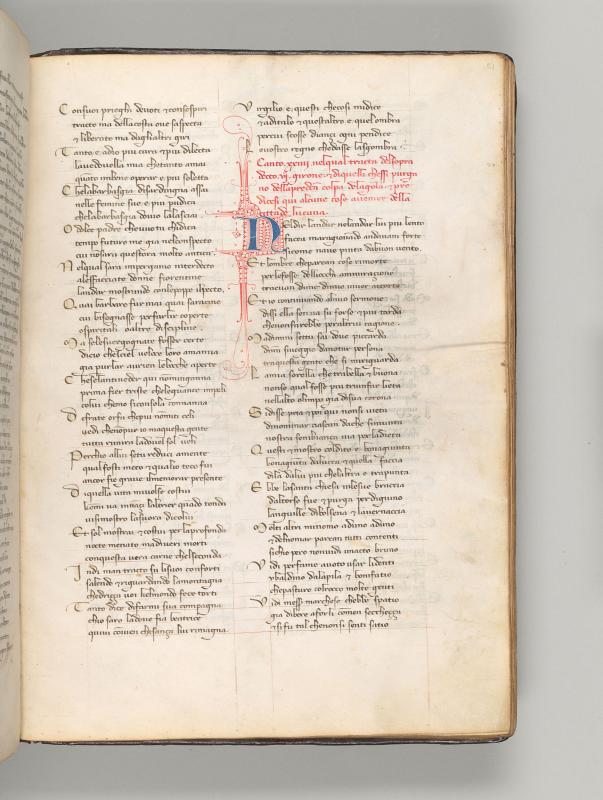 Consuoi prieghi devoti & consospiri
tracto ma dellacosta oue saspecta
& liberato ma deglialtri giri
Tanto e adio piu cara & piu dilecta
lauedouella mia chetanto amai
quāto imbene operar e piu soletta
Chelabarbagia disardigna assai
nelle femine sue e piu pudica
chelabarbagia douio lalasciai
O dolce frate cheuuotu chidica
tempo futuro me gia nelconspecto
cui nonsira questora molto antica
Nelqual sara impergamo interdecto
allesfacciate donne fiorentine
landar mostrando conlepoppe ilpecto
Quai barbare fur mai quai saracine
cui bisognasse perfarle coperte
ospiritali oaltre discipline
Ma selosuergognate fosser certe
dicio chelciel ueloce loro amanna
gia purlar aurien lebocche aperte
Che selantiueder qui nonminganna
prima fier triste chele guance impeli
colui cheno siconsola connanna
De frate or fa chepiu nōmiti celi
uedi chenonpur io maquesta gente
tutta rimira ladouel sol ueli
Perchio allui seti reduci amente
qual fosti meco & qualio teco fui
ancor fie graue ilmemorar presente
Di quella uita miuolse costui
che mi ua ināçi laltrier quādo tonda
uisimostro lasuora dicolui
Et sol mostrai & costui per laprofonda
nocte menato ma diueri morti
conquesta uera carne chelseconda
Indi man tracto su lisuoi conforti
salendo & rigirando lamontagna
chedriçça uoi chelmondo fece torti
Tanto dice difarmi sua compagna
chio saro ladoue fia beatrice
quiui conuien chesança lui rimagna
Virgilio e questi checosi midice
& aditailo & questaltro e quel ombra
percui scosse diançi ogni pendice
Lo uostro regno chedasse lasgombra
Canto xxiiij nelqual tracta delsopra
decto .vj. girone & diquelli chessi purga
no dellapredetta colpa dela gola & pre
dicesi qui alcune cose auenire della
citta de lucana
Neldir landar nelandar lui piu lento
facea maragionādo andauam forte
sicome naue pinta dabuon uento
Et lombre cheparean cose rimorte
perlefosse delliocchi ammiratione
traeuan dime dimio uiuer accorte
Et io continuando almio sermone
dissi ella sen ua su forse & piu tarda
chenonfarebbe peraltrui cagione
Ma dimmi setusai doue piccarda
dimmi siueggio danotar persona
traquesta gente che si miriguarda
La mia sorella che trabella & buona
nonso qual fosse piu triunfa lieta
nellalto olimpo gia disua corona
Si disse pria & poi qui nonsi uieta
dinominar ciascun dache simunta
nostra sembianca uia perladieta
Questi & mostro coldito e bonagiunta
bonagiunta dalucca & quella faccia
dila dalui piu chelaltra e trapunta
Ebbe lasancta chiesa inlesue braccia
daltorso fue & purga perdigiuno
languille dibolsena & lauernaccia
Molti altri minomo aduno aduno
& delnomar parean tutti contenti
sichio pero nonuidi unacto bruno
Vidi perfame auoto usar lidenti
ybaldino dalapila & bonifatio
chepasturo colrocco molte genti
Vidi messer marchese chebbe spatio
gia dibere aforli comen secheçça
& si fu tal chenonsi senti satio